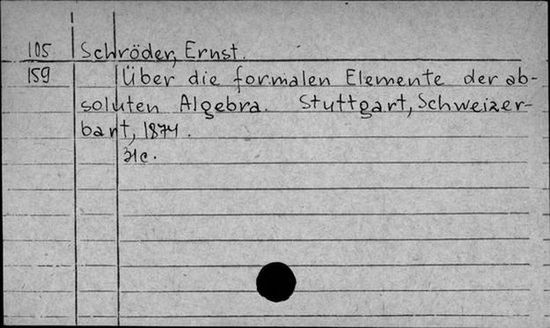 105 Schröder, Ernst.
159 Über die formalen Elemente der ab-
soluten Algebra. Stuttgart, Schweizer-
bart, 1874.
31c.